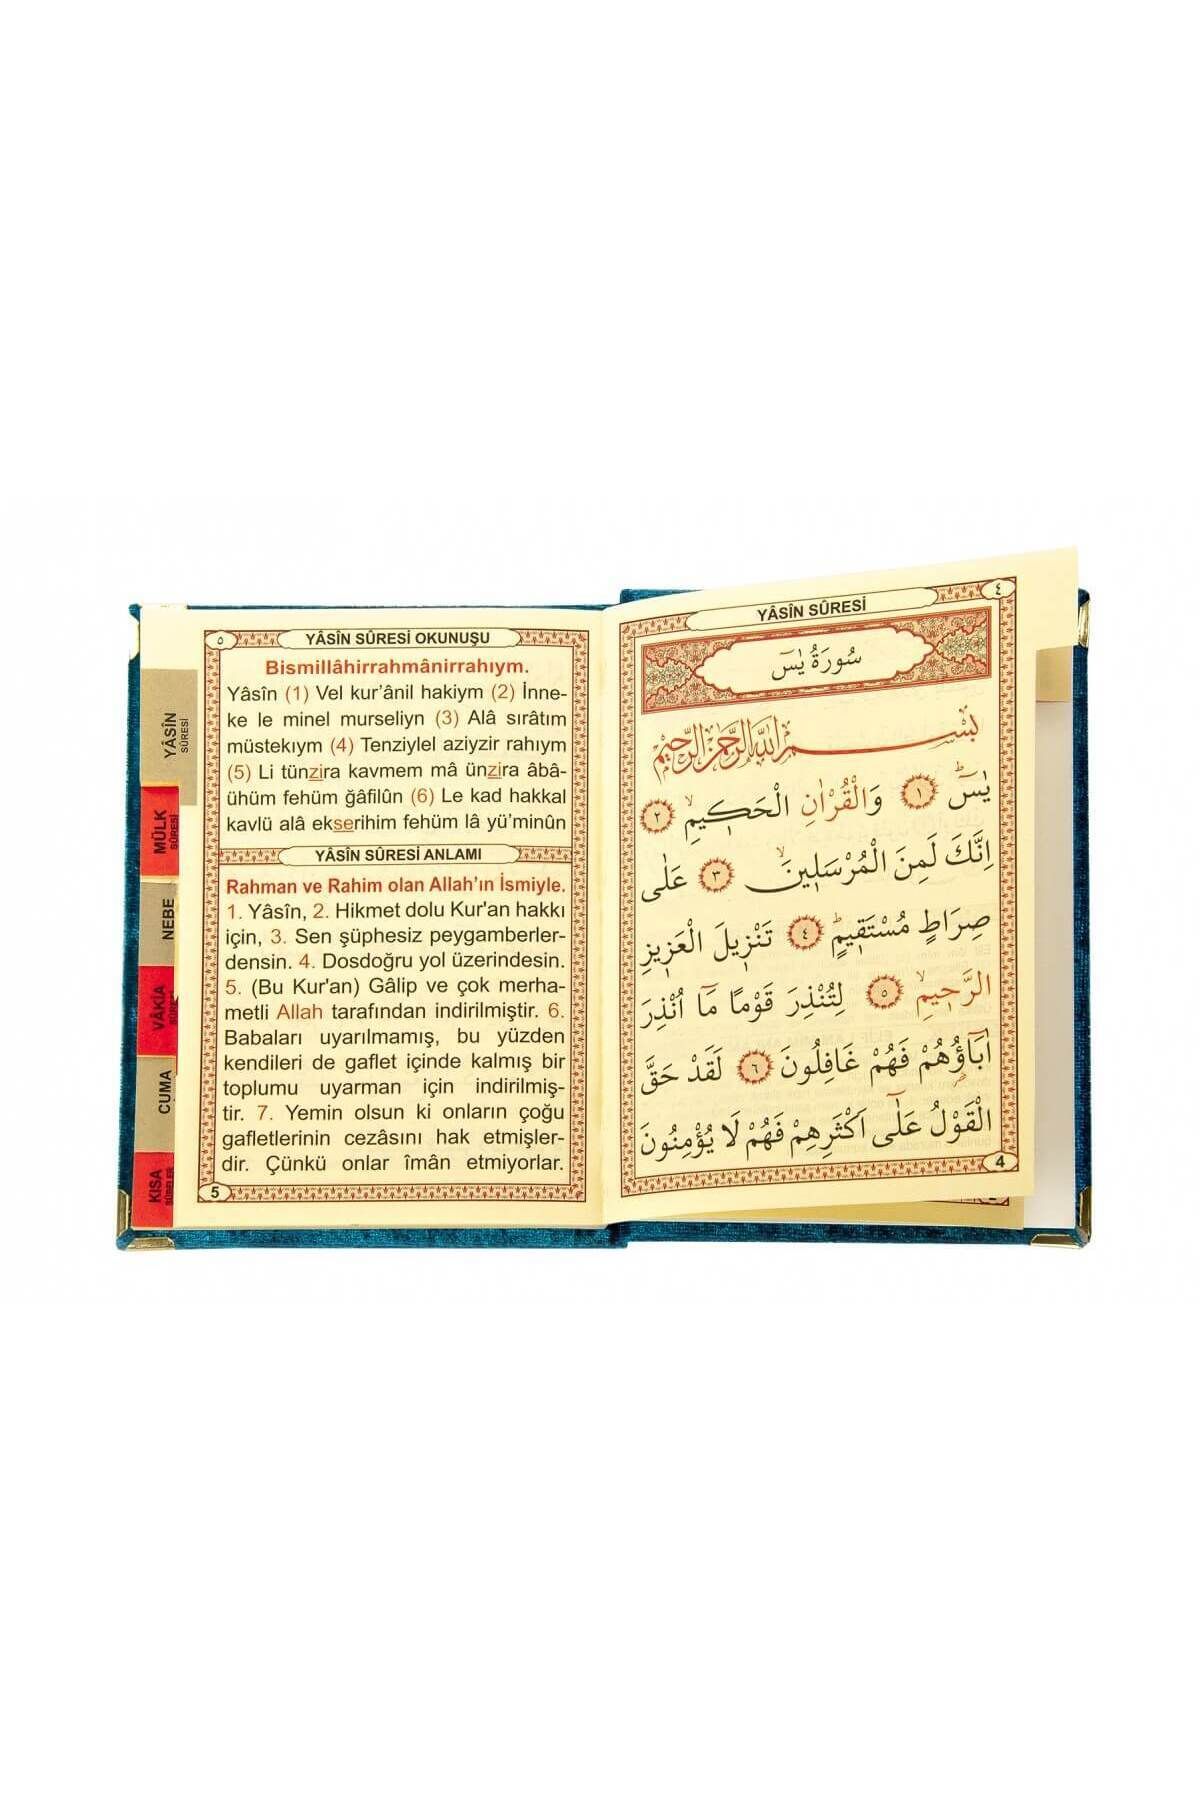 ٤
YÂSÎN SÛRESİ
سُورَةُ يٰسٓ
بِسْمِ اللّٰهِ الرَّحْمٰنِ الرَّحِيمِ
يٰسٓ ۚ ١ وَالْقُرْاٰنِ الْحَك۪يمِۙ ٢
اِنَّكَ لَمِنَ الْمُرْسَل۪ينَۙ ٣ عَلٰى
صِرَاطٍ مُسْتَق۪يمٍۜ ٤ تَنْز۪يلَ الْعَز۪يزِ
الرَّح۪يمِۙ ٥ لِتُنْذِرَ قَوْمًا مَٓا اُنْذِرَ
اٰبَٓاؤُ۬هُمْ فَهُمْ غَافِلُونَ ٦ لَقَدْ حَقَّ
الْقَوْلُ عَلٰٓى اَكْثَرِهِمْ فَهُمْ لَا يُؤْمِنُونَ
4
٥
YÂSÎN SÛRESİ OKUNUŞU
Bismillâhirrahmânirrahıym.
Yâsîn (1) Vel kur’ânil hakiym (2) İnne-
ke le minel murseliyn (3) Alâ sırâtım
müstekıym (4) Tenziylel aziyzir rahıym
(5) Li tünzira kavmem mâ ünzira âbâ-
ühüm fehüm ğâfilûn (6) Le kad hakkal
kavlü alâ ekserihim fehüm lâ yü’minûn
YÂSÎN SÛRESİ ANLAMI
Rahman ve Rahim olan Allah’ın İsmiyle.
1. Yâsîn, 2. Hikmet dolu Kur'an hakkı
için, 3. Sen şüphesiz peygamberler-
densin. 4. Dosdoğru yol üzerindesin.
5. (Bu Kur'an) Gâlip ve çok merha-
metli Allah tarafından indirilmiştir. 6.
Babaları uyarılmamış, bu yüzden
kendileri de gaflet içinde kalmış bir
toplumu uyarman için indirilmiş-
tir. 7. Yemin olsun ki onların çoğu
gafletlerinin cezâsını hak etmişler-
dir. Çünkü onlar îmân etmiyorlar.
5
YÂSÎN
SÛRESİ
MÜLK
SÛRESİ
NEBE
VÂKIA
CUMA
KISA
SÛRELER